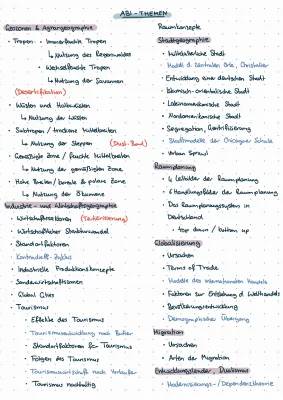 ABI - THEMEN
Geozonen & Agrargeographie
• Tropen - Immerfeuchte Tropen
↳ Nutzung des Regenwaldes
• Wechselfeuchte Tropen
↳ Nutzung der Savannen
(Desertifikation)
• Wüsten und Halbwüsten
↳ Nutzung der Wüsten
• Subtropen / trockene Mittelbreiten
↳ Nutzung der Steppen (Dust-Bowl)
• Gemäßigte Zone / feuchte Mittelbreiten
↳ Nutzung der gemäßigten Zone
• Hohe Breiten / boreale & polare Zone
↳ Nutzung der
Industrie - und Wirtschaftsgeographie
• Wirtschaftssektoren (Tertiärisierung)
• Wirtschaftlicher Strukturwandel
• Standortfaktoren
• Kondratieff - Zyklus
• Industrielle Produktionskonzepte
• Sonderwirtschaftszonen
• Global Cities
• Tourismus
• Effekte des Tourismus
• Tourismusentwicklung nach Butler
• Standortfaktoren für Tourismus
• Folgen des Tourismus
• Tourismuswirtschaft nach Vorlaufer
• Tourismus nachhaltig
Raumkonzepte
Stadtgeographie
• Mittelalterliche Stadt
• Modell d. zentralen Orte, Christaller
• Entwicklung einer deutschen Stadt
• Islamisch-orientalische Stadt
• Lateinamerikanische Stadt
• Nordamerikanische Stadt
• Segregation, Gentrifizierung
• Stadtmodelle der Chicagoer Schule
• Urban Sprawl
Raumplanung
• 4 Leitbilder der Raumplanung
• 4 Handlungsfelder der Raumplanung
• Das Raumplanungssystem in
Deutschland
• top down / bottom up
Globalisierung
• Ursachen
• Terms of Trade
• Modelle des internationalen Handels
• Faktoren zur Entstehung d. Welthandels
• Bevölkerungsentwicklung
• Demographischer Übergang
Migration
• Ursachen
• Arten der Migration
Entwicklungsländer, Dualismus
• Modernisierungs- / Dependenztheorie